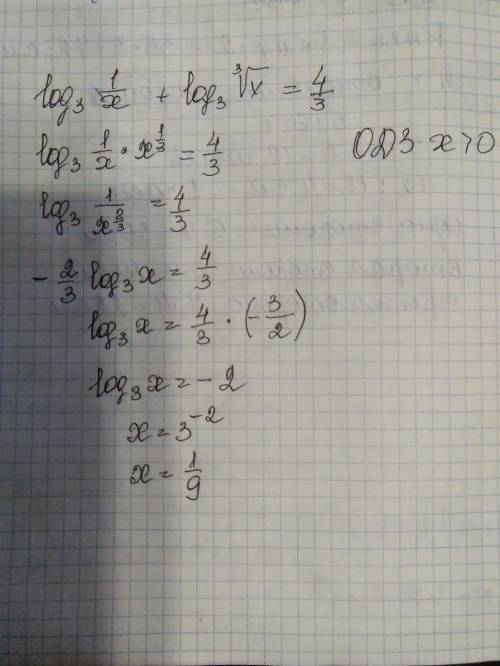 log₃ 1/x + log₃ ∛x = 4/3
log₃ 1/x · x^(1/3) = 4/3 ОДЗ x>0
log₃ 1/x^(2/3) = 4/3
- 2/3 log₃ x = 4/3
log₃ x = 4/3 · (-3/2)
log₃ x = - 2
x = 3⁻²
x = 1/9